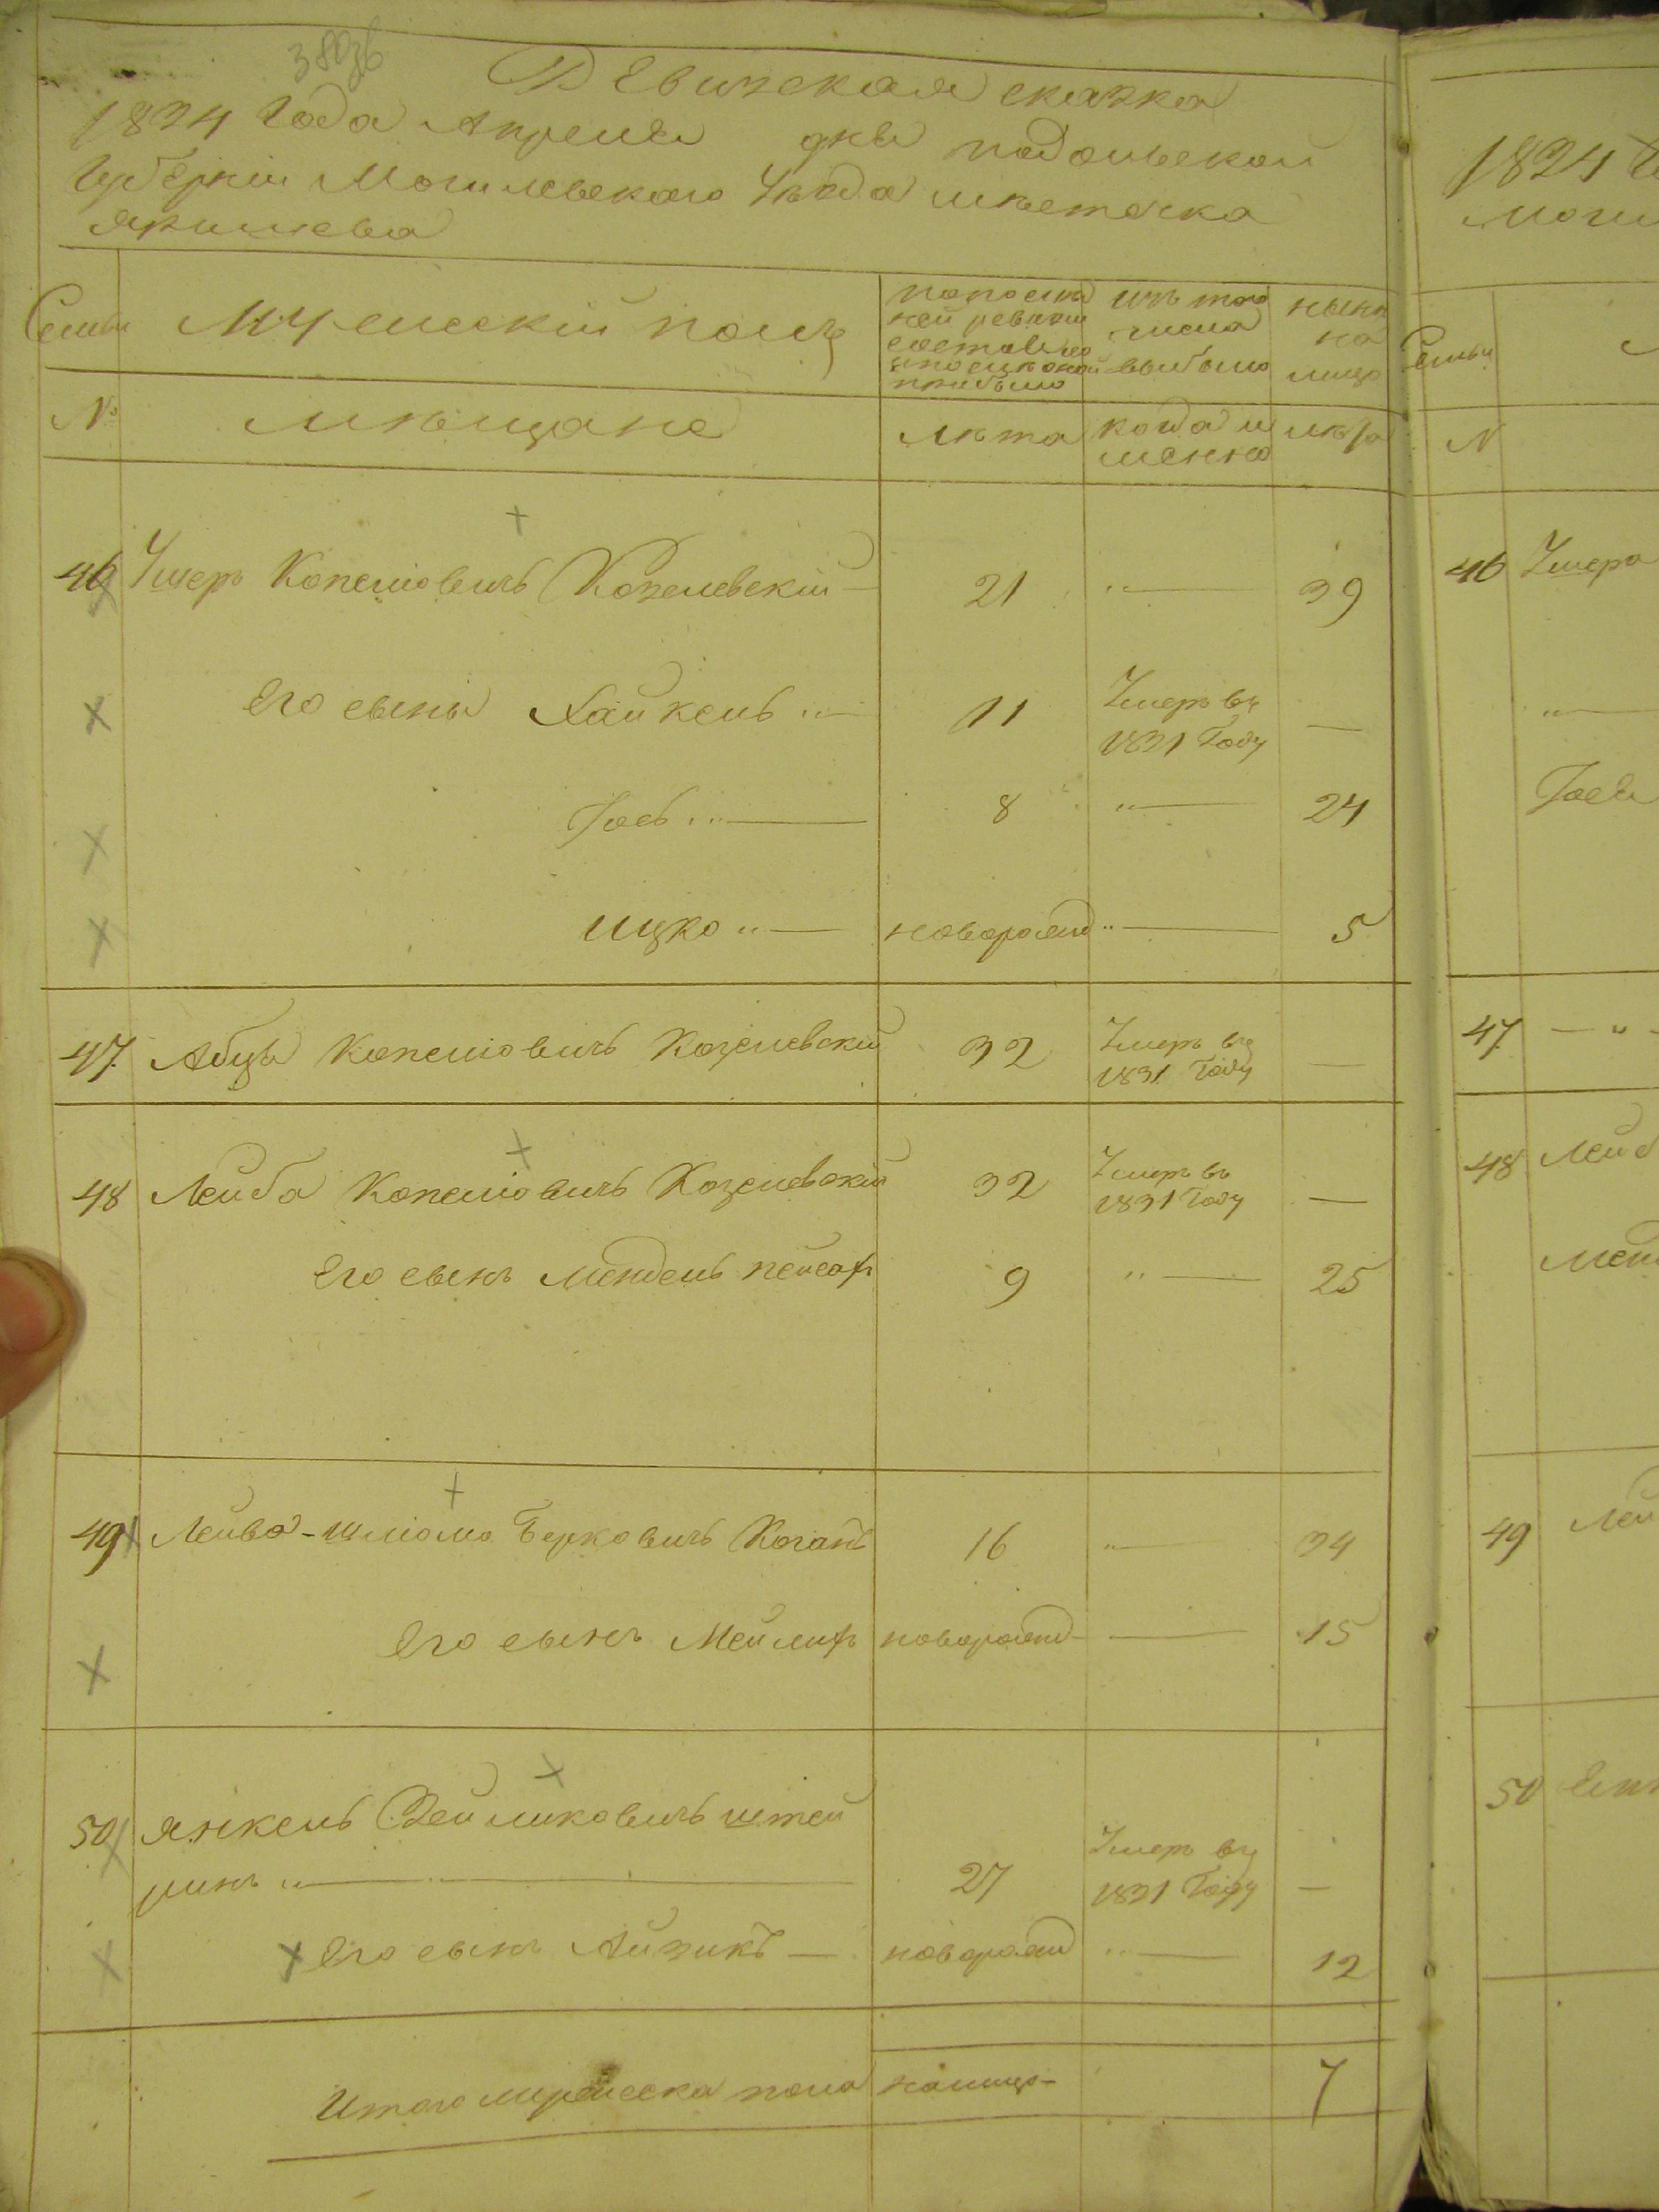 Ревизская сказка
1834 Года Апреля дня подольской
Губерніи Могилевскаго Уѣзда мѣстечка
Яришева
Семьи Мужескій полъ
попослѣд
ней ревизіи
состояло
ипослѣ оной
прибыло
изъ того
числа
выбыло
нынѣ
на
лицо
№ мѣщане Лѣта когда и
имянно
лѣта
46 Ушеръ Копелiовичъ Козелевскій 21 „ 39
Его сыны Хайкель „ 11 Умеръ въ
1831 Году —
Іось „ 8 „ 24
Ицко „ новорожд „ 5
47 Абцы Копелiовичъ Козелевскій 32 Умеръ въ
1831 Году —
48 Лейба Копелiовичъ Козелевскій 32 Умеръ въ
1831 Году —
Его сынъ Мендель пейсах 9 „ 25
49 Лейба-Шліома Берковичъ Коганъ 16 „ 34
Его сынъ Мейлих новорожд — 15
50 Янкель Зейликовичъ Штей
„ 27 Умеръ въ
1831 Году —
Его сынъ Айзикъ — новорожд „ 12
Итого мужеска пола налицо 7
1824
Моги
Семьи
N
46 Умера
„
47 — „ -
48 Лейб
Менд
49 Лей
50